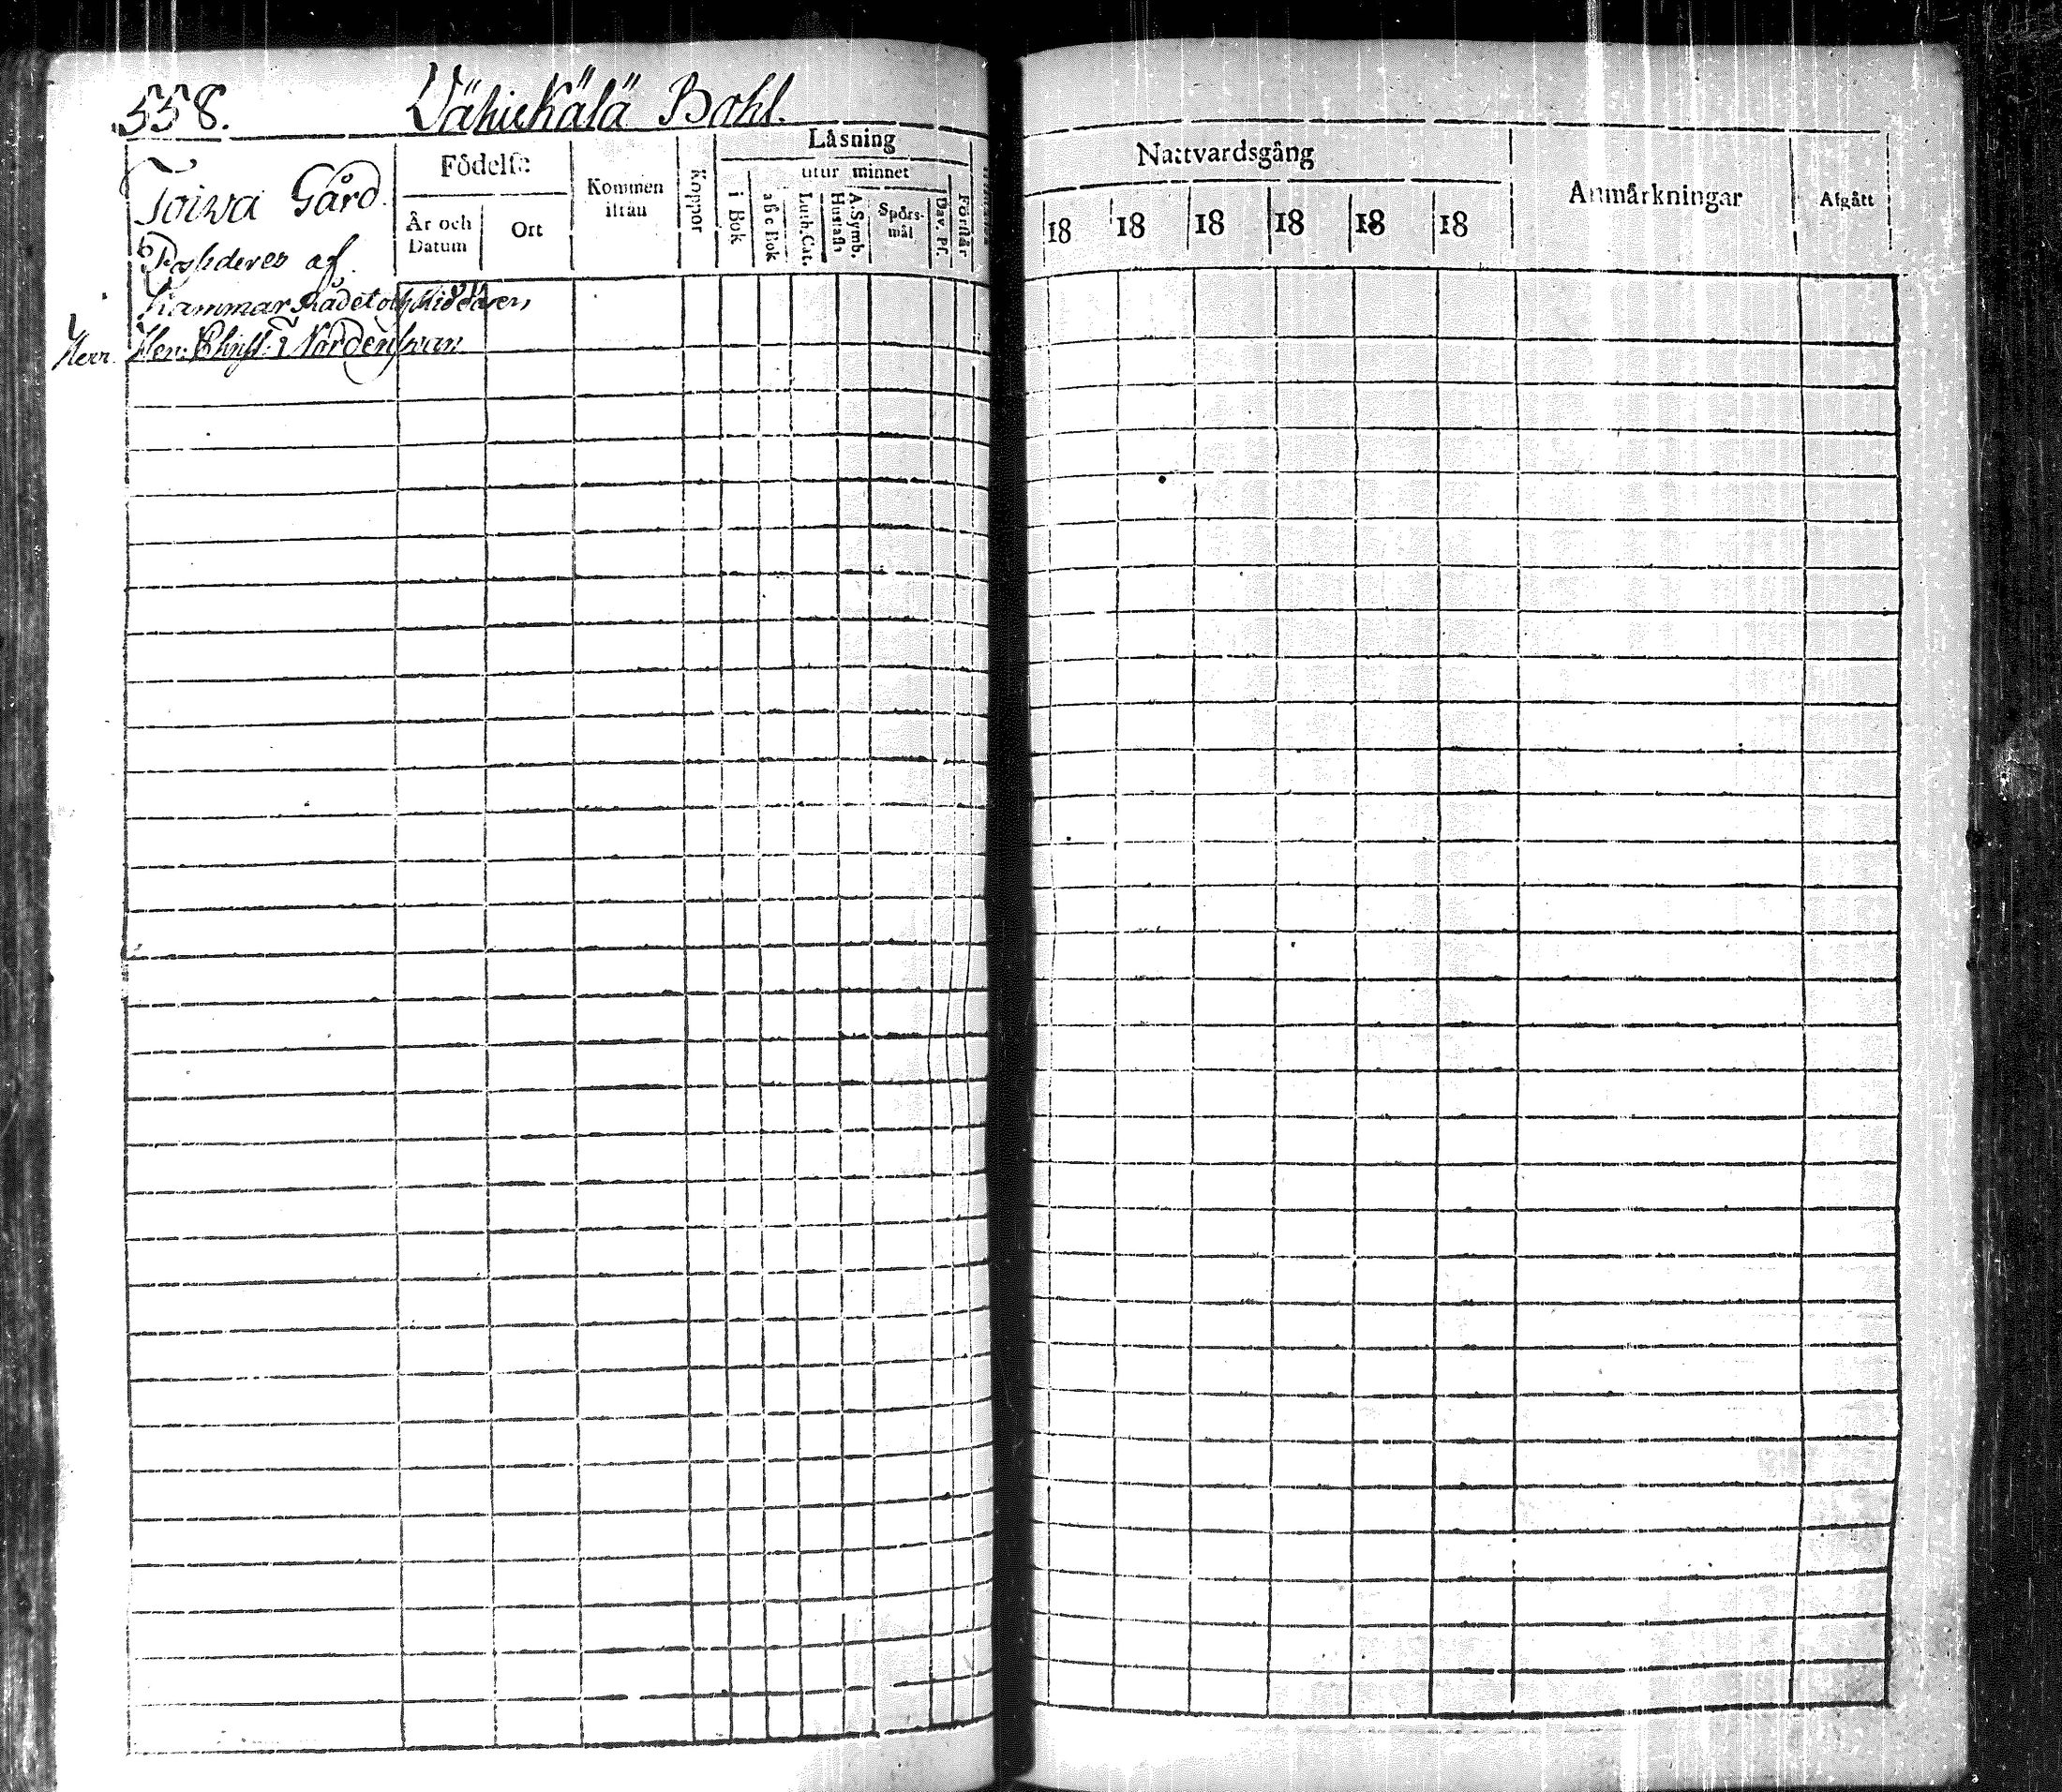 558. Vähickälä Bohl.
Toiwa Gård.
Possederes af
Kammar Rådet och Riddaren
Herr Herr Christ: Nordensvan
Födelse
År och Datum
Ort
Kommen ifrån
Koppor
Läsning
i Bok
utur minnet
abc Bok
Luth. Cat.
Hustafl
A. Symb.
Spörs-
mål
Dav. Ps.
Förstår
Nattvardsgång
18 18 18 18 18 18
Anmärkningar
Afgått